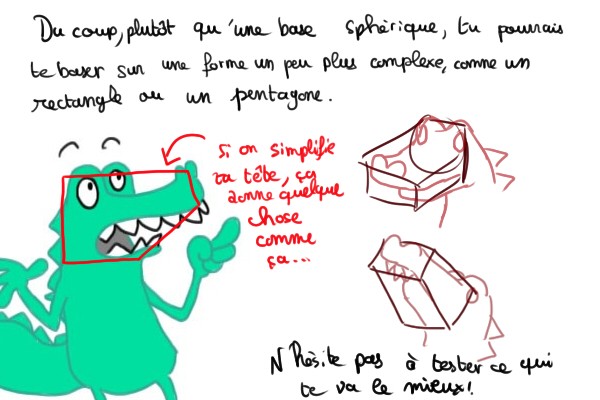 Du coup, plutôt qu'une base sphérique, tu pourrais
te baser sur une forme un peu plus complexe, comme un
rectangle ou un pentagone.
Si on simplifie
ta tête, ça
donne quelque
chose
comme
ça...
N'hésite pas à tester ce qui
te va le mieux!